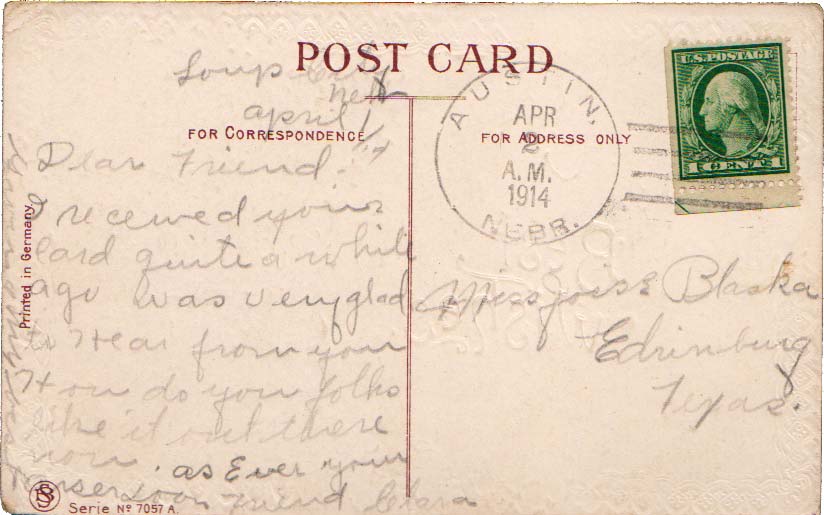 POST CARD
FOR CORRESPONDENCE
FOR ADDRESS ONLY
Loup City
Nebr
April 1, 14
Dear Friend.
I received your
card quite a while
ago was very glad
to Hear from you
How do you folks
like it out there
now. as Ever your
anser soon Friend Clara
Printed in Germany.
Serie Nº 7057 A.
AUSTIN,
APR
2
A.M.
1914
NEBR.
U.S. POSTAGE
1 CENT 1
Miss Blaska
Edinburg
Texas.